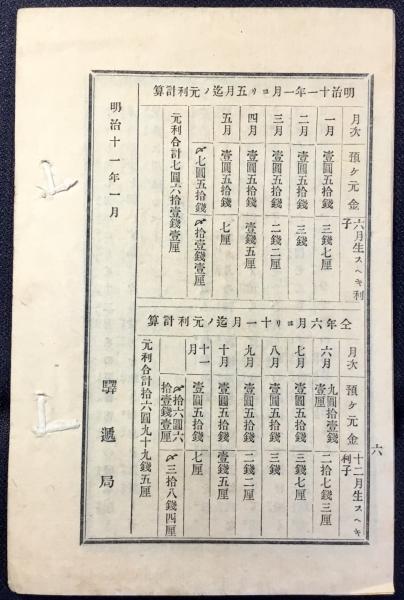 明治十一年一月ヨリ五月迄ノ元利計算
月次 預ケ元金 六月生スヘキ利子
一月 壹圓五拾錢 三錢七厘
二月 壹圓五拾錢 三錢
三月 壹圓五拾錢 二錢二厘
四月 壹圓五拾錢 壹錢五厘
五月 壹圓五拾錢 七厘
〆七圓五拾錢 〆拾壹錢壹厘
元利合計七圓六拾壹錢壹厘
仝年六月ヨリ十一月迄ノ元利計算
月次 預ケ元金 十二月生スヘキ利子
六月 九圓拾壹錢壹厘 二拾七錢三厘
七月 壹圓五拾錢 三錢七厘
八月 壹圓五拾錢 三錢
九月 壹圓五拾錢 二錢二厘
十月 壹圓五拾錢 壹錢五厘
十一月 壹圓五拾錢 七厘
〆拾六圓六拾壹錢壹厘 〆三拾八錢四厘
元利合計拾六圓九十九錢五厘
明治十一年一月 驛遞局
六